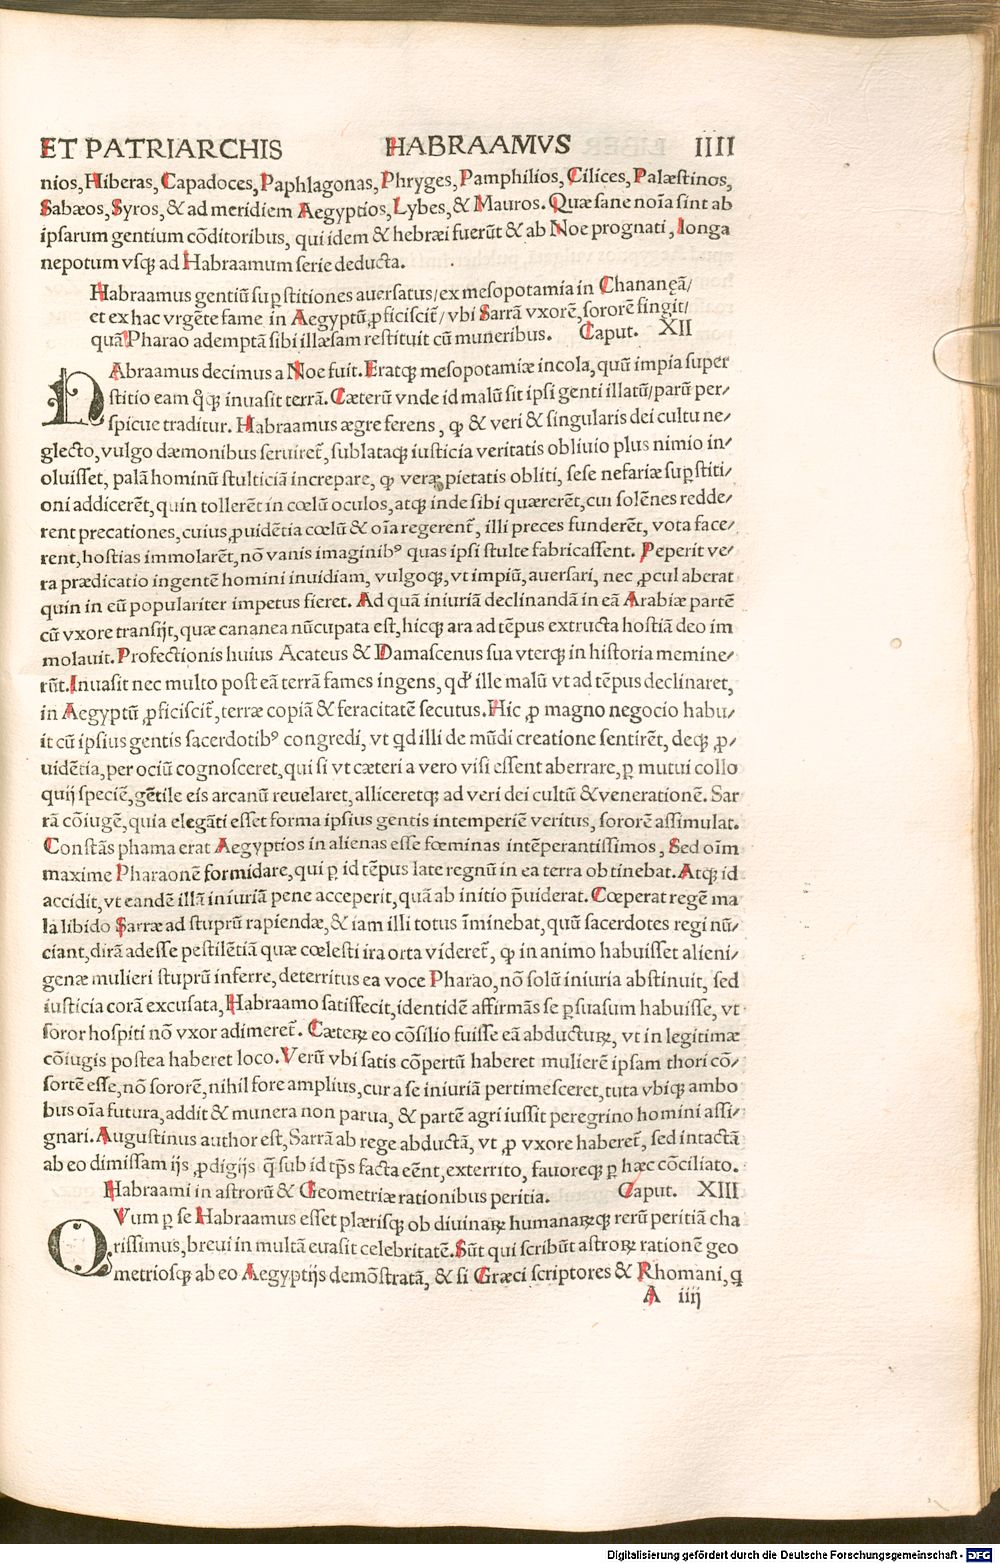 ET PATRIARCHIS HABRAAMVS IIII
nios, Hiberas, Capadoces, Paphlagonas, Phryges, Pamphilios, Cilices, Palæstinos,
Sabæos, Syros, & ad meridiem Aegyptios, Lybes, & Mauros. Quæ sane noīa sint ab
ipsarum gentium cōditoribus, qui idem & hebræi fuerūt & ab Noe prognati, longa
nepotum vsqꝫ ad Habraamum serie deducta.
Habraamus gentiū sup̄stitiones auersatus/ ex mesopotamia in Chananęā/
et ex hac vrgēte fame in Aegyptū ꝓficiscit̄/ vbi Sarrā vxorē, sororē fingit/
quā Pharao ademptā sibi illæsam restituit cū muneribus. Caput. XII
HAbraamus decimus a Noe fuit. Eratqꝫ mesopotamiæ incola, quū impia super
stitio eam q̊qꝫ inuasit terrā. Cæterū vnde id malū sit ipsi genti illatū/ parū per/
spicue traditur. Habraamus ægre ferens, ꝙ & veri & singularis dei cultu ne/
glecto, vulgo dæmonibus seruiret̄, sublataqꝫ iusticia veritatis obliuio plus nimio in/
oluisset, palā hominū stulticiā increpare, ꝙ veræ pietatis obliti, sese nefariæ sup̄stiti/
oni addicerēt, quin tollerēt in cœlū oculos, atqꝫ inde sibi quærerēt, cui solēnes redde/
rent precationes, cuius ꝓuidētia cœlū & oīa regerent̄, illi preces funderēt, vota face/
rent, hostias immolarēt, nō vanis imaginibꝰ quas ipsi stulte fabricassent. Peperit ve/
ra prædicatio ingentē homini inuidiam, vulgoqꝫ, vt impiū, auersari, nec ꝓcul aberat
quin in eū populariter impetus fieret. Ad quā iniuriā declinandā in eā Arabiæ partē
cū vxore transijt, quæ cananea nūcupata est, hicqꝫ ara ad tēpus extructa hostiā deo im
molauit. Profectionis huius Acateus & Damascenus sua vterqꝫ in historia memine/
rūt. Inuasit nec multo post eā terrā fames ingens, qd' ille malū vt ad tēpus declinaret,
in Aegyptū ꝓficiscit̄, terræ copiā & feracitatē secutus. Hic ꝓ magno negocio habu/
it cū ipsius gentis sacerdotibꝰ congredi, vt qd illi de mūdi creatione sentirēt, deqꝫ ꝓ/
uidētia, per ociū cognosceret, qui si vt cæteri a vero visi essent aberrare, ꝑ mutui collo
quij speciē, gētile eis arcanū reuelaret, alliceretqꝫ ad veri dei cultū & venerationē. Sar
rā cōiugē, quia elegāti esset forma ipsius gentis intemperiē veritus, sororē assimulat.
Constās phama erat Aegyptios in alienas esse fœminas intēperantissimos, Sed oīm
maxime Pharaonē formidare, qui ꝑ id tēpus late regnū in ea terra obtinebat. Atqꝫ id
accidit, vt eandē illā iniuriā pene acceperit, quā ab initio p̄uiderat. Cœperat regē ma
la libido Sarræ ad stuprū rapiendæ, & iam illi totus īminebat, quū sacerdotes regi nū/
ciant, dirā adesse pestilētiā quæ cœlesti ira orta videret̄, ꝙ in animo habuisset alieni/
genæ mulieri stuprū inferre, deterritus ea voce Pharao, nō solū iniuria abstinuit, sed
iusticia corā excusata, Habraamo satisfecit, identidē affirmās se ꝑsuasum habuisse, vt
soror hospiti nō vxor adimeret̄. Cæteꝝ eo cōsilio fuisse eā abductuꝝ, vt in legitimæ
cōiugis postea haberet loco. Verū vbi satis cōpertū haberet mulierē ipsam thori cō/
sortē esse, nō sororē, nihil fore amplius, cur a se iniuriā pertimesceret, tuta vbiqꝫ ambo
bus oīa futura, addit & munera non parua, & partē agri iussit peregrino homini assi/
gnari. Augustinus author est, Sarrā ab rege abductā, vt ꝓ vxore haberet̄, sed intactā
ab eo dimissam ijs ꝓdigijs q̄ sub id tp̄s facta eēnt, exterrito, fauoreqꝫ ꝑ hæc cōciliato.
Habraami in astrorū & Geometriæ rationibus peritia. Caput. XIII
QVum ꝑ se Habraamus esset plærisqꝫ ob diuinaꝝ humanaꝝqꝫ rerū peritiā cha
rissimus, breui in multā euasit celebritatē. Sūt qui scribūt astroꝝ rationē geo
metriosqꝫ ab eo Aegyptijs demōstratā, & si Græci scriptores & Rhomani, q
A iiij
Digitalisierung gefördert durch die Deutsche Forschungsgemeinschaft - DFG